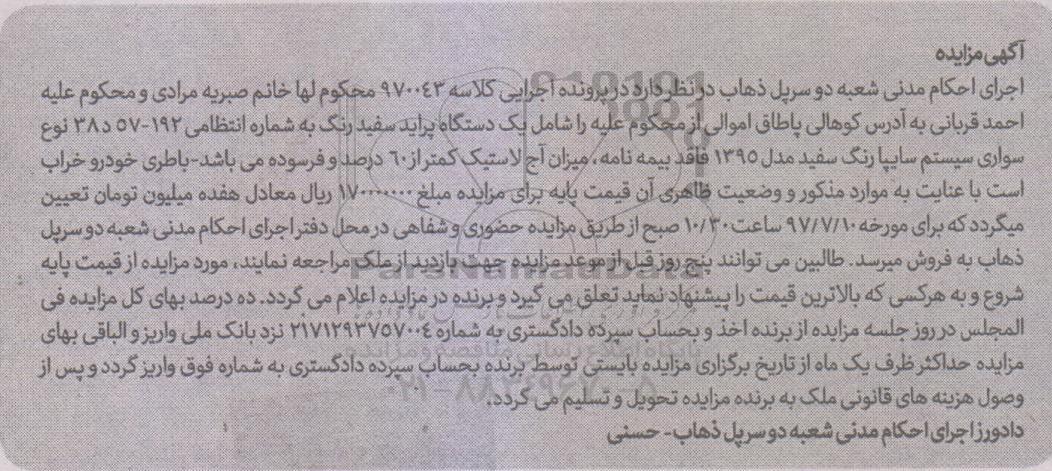 آگهی مزایده
اجرای احکام مدنی شعبه دو سرپل ذهاب در نظر دارد در پرونده اجرایی کلاسه ۹۷۰۰۴۳ محکوم لها خانم صبریه مرادی و محکوم علیه
احمد قربانی به آدرس کوهالی پاطاق اموالی از محکوم علیه را شامل یک دستگاه پراید سفید رنگ به شماره انتظامی ۱۹۲-۵۷ د ۳۸ نوع
سواری سیستم سایپا رنگ سفید مدل ۱۳۹۵ فاقد بیمه نامه، میزان آج لاستیک کمتر از ۶۰ درصد و فرسوده می باشد-باطری خودرو خراب
است با عنایت به موارد مذکور و وضعیت ظاهری آن قیمت پایه برای مزایده مبلغ ۱۷۰۰۰۰۰۰۰ ریال معادل هفده میلیون تومان تعیین
میگردد که برای مورخه ۹۷/۷/۱۰ ساعت ۱۰/۳۰ صبح از طریق مزایده حضوری و شفاهی در محل دفتر اجرای احکام مدنی شعبه دو سرپل
ذهاب به فروش میرسد. طالبین می توانند پنج روز قبل از موعد مزایده جهت بازدید از ملک مراجعه نمایند، مورد مزایده از قیمت پایه
شروع و به هرکسی که بالاترین قیمت را پیشنهاد نماید تعلق می گیرد و برنده در مزایده اعلام می گردد. ده درصد بهای کل مزایده فی
المجلس در روز جلسه مزایده از برنده اخذ و بحساب سپرده دادگستری به شماره ۲۱۷۱۲۹۳۷۵۷۰۰۴ نزد بانک ملی واریز و الباقی بهای
مزایده حداکثر ظرف یک ماه از تاریخ برگزاری مزایده بایستی توسط برنده بحساب سپرده دادگستری به شماره فوق واریز گردد و پس از
وصول هزینه های قانونی ملک به برنده مزایده تحویل و تسلیم می گردد.
دادورز اجرای احکام مدنی شعبه دو سرپل ذهاب- حسنی
ParsNamadData
۰۲۱-۸۸۳۴۹۶۷۰-۵